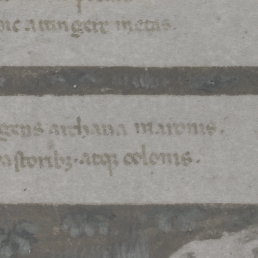 hic attingere metas.
tegens archana maronis.
pastoribz. atqz colonis.